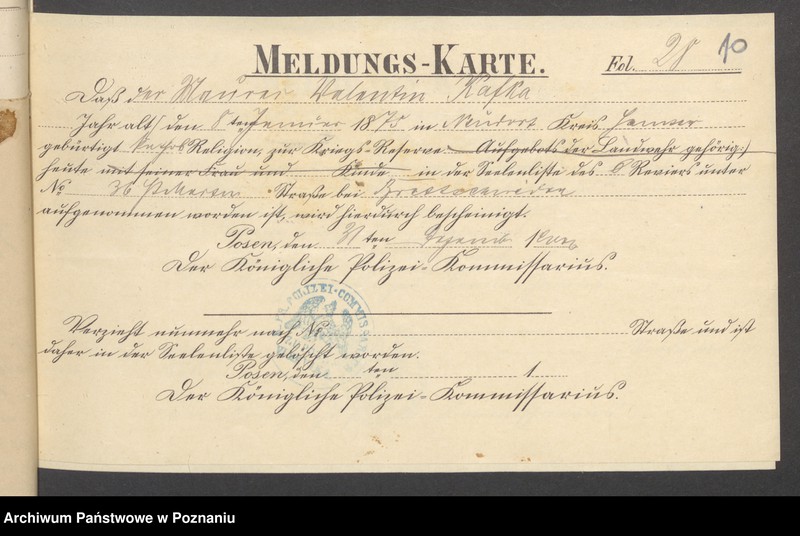 MELDUNGS-KARTE. Fol. 28 10
Daß der Maurer Valentin Kafka
Jahr alt/ den 8 ten 1875 in Kreis
gebürtigt kathol Religion, zur Kriegs-Reserve Aufgebots der Landwehr gehörig:/
heute mit seiner Frau und Kinde in der Seelenliste des 6 Reviers unter
No 36 St Martin Straße bei
aufgenommen worden ist, wird hierdurch bescheinigt.
Posen, den ten
Der Königliche Polizei-Kommissarius.
POLIZEI-COMMISS
Verzieht nunmehr nach No Straße und ist
daher in der Seelenliste gelöscht worden.
Posen, den ten 1
Der Königliche Polizei-Kommissarius.
Archiwum Państwowe w Poznaniu